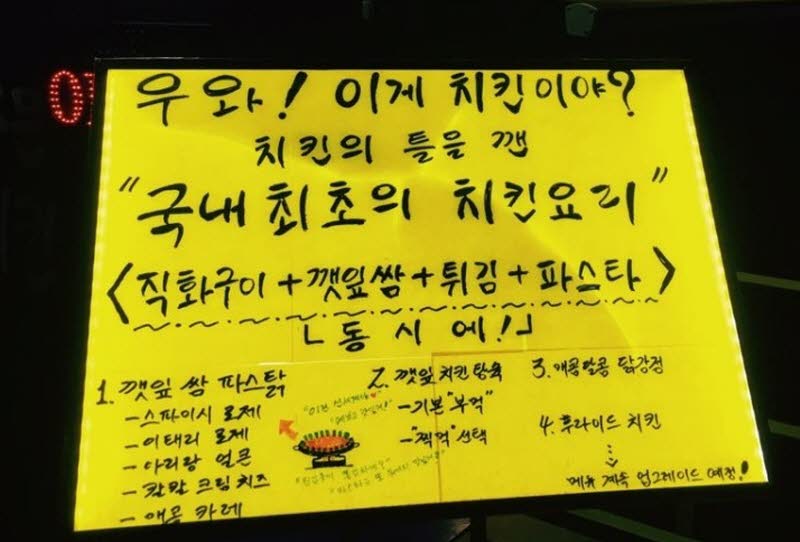 우와! 이게 치킨이야?
치킨의 틀을 깬
"국내 최초의 치킨요리"
<직화구이+깻잎쌈+튀김+파스타>
「동시에!」
1. 깻잎 쌈 파스닭
-스파이시 로제
-이태리 로제
-아리랑 얼큰
-칼칼 크림 치즈
-매콤 카레
2. 깻잎 치킨 탕육
-기본 "부먹"
-"찍먹" 선택
3. 매콤달콤 닭강정
4. 후라이드 치킨
메뉴 계속 업그레이드 예정!